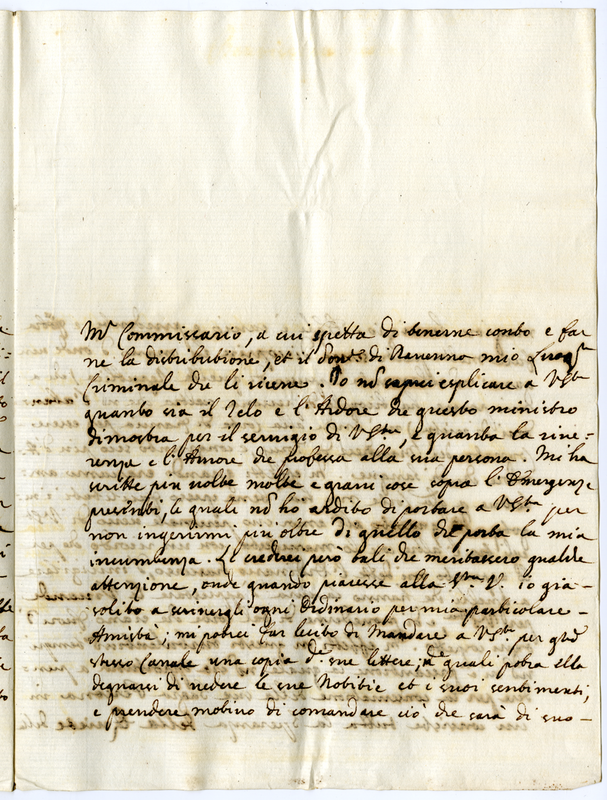 Mr Commissario, a cui spetta di tenerne conto e far
ne la distributione, et il di Ravenna mio
Criminale che li riceve. Io nõ saprei esplicare a VSta
quanto sia il Zelo e l'Ardore che questo ministro
dimostra per il servigio di VSta, e quanta la rive=
renza e l'Amore che professa alla sua persona. Mi ha
scritte piu volte molte e gravi cose sopra l'Emergenze
presenti, le quali nõ ho ardito di portare a VSta per
non ingerirmi piu oltre di quello che porta la mia
incumbenza. Le crederei però tali che meritassero qualche
attenzione, onde quando piacesse alla Stà V. io gia-
solito a scrivergli ogni Ordinario per mia particolare-
Amistà; mi potrei far lecito di Mandare a VSta per
stesso Canale una copia di sue lettere; quali potrà ella
degnarsi di vedere le sue Notitie et i suoi sentimenti,
e prendere motivo di comandare ciò che sarà di suo-